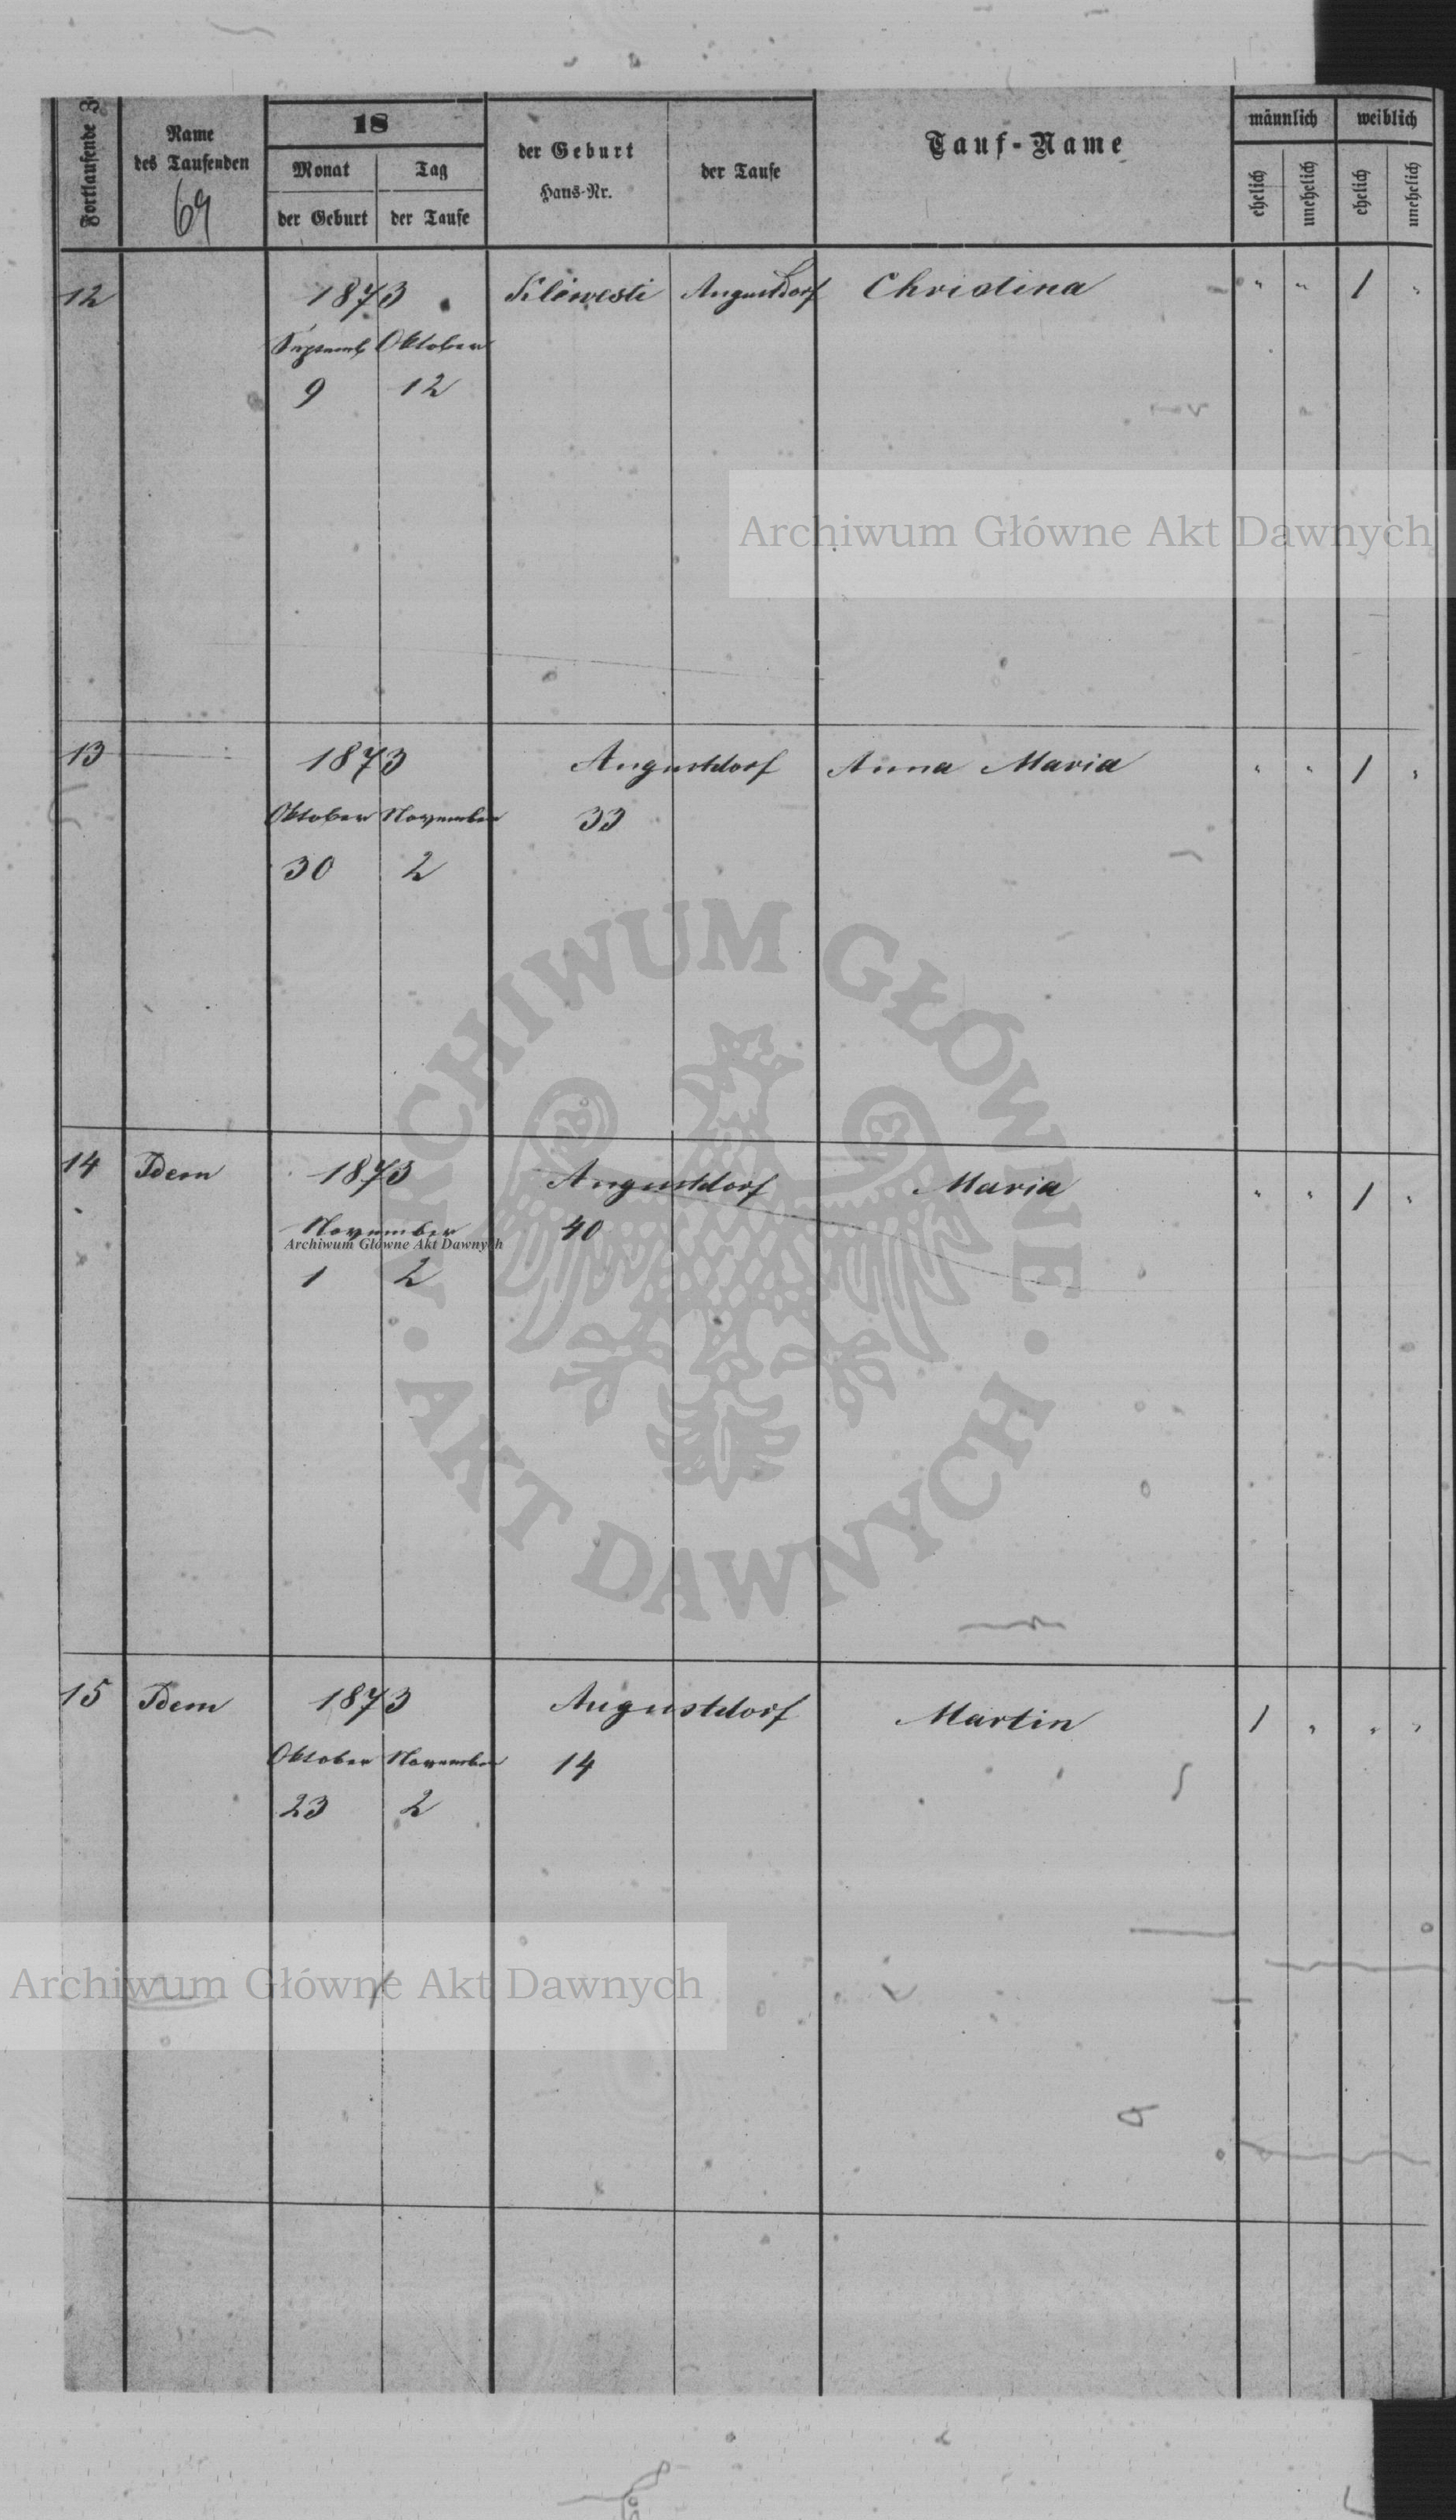 Fortlaufende Z
Name
des Taufenden
69
18
Monat Tag
der Geburt der Taufe
der Geburt
Haus-Nr.
der Taufe
Tauf-Name
männlich weiblich
ehelich unehelich ehelich unehelich
12 1873 Augustdorf Christina " " 1 "
Septemb Oktober
9 12
Archiwum Główne Akt Dawnych
13 1873 Augustdorf Anna Maria " " 1 "
Oktober November 33
30 2
14 Idem 1873 Augustdorf Maria " " 1 "
November 40
Archiwum Główne Akt Dawnych
1 2
ARCHIWUM GŁÓWNE · AKT DAWNYCH ·
15 Idem 1873 Augustdorf Martin 1 " " "
Oktober November 14
23 2
Archiwum Główne Akt Dawnych